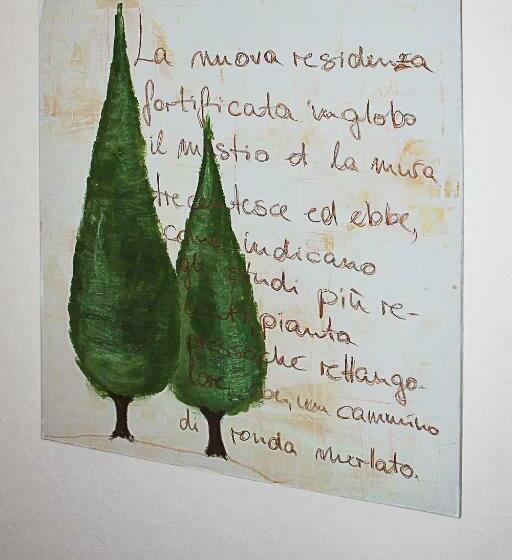 La nuova residenza
fortificata inglobo
il mastio et la mura
trecentesce ed ebbe,
come indicano
gli studi più re-
centi, pianta
pressoche rettango-
lare ben, un cammino
di ronda merlato.